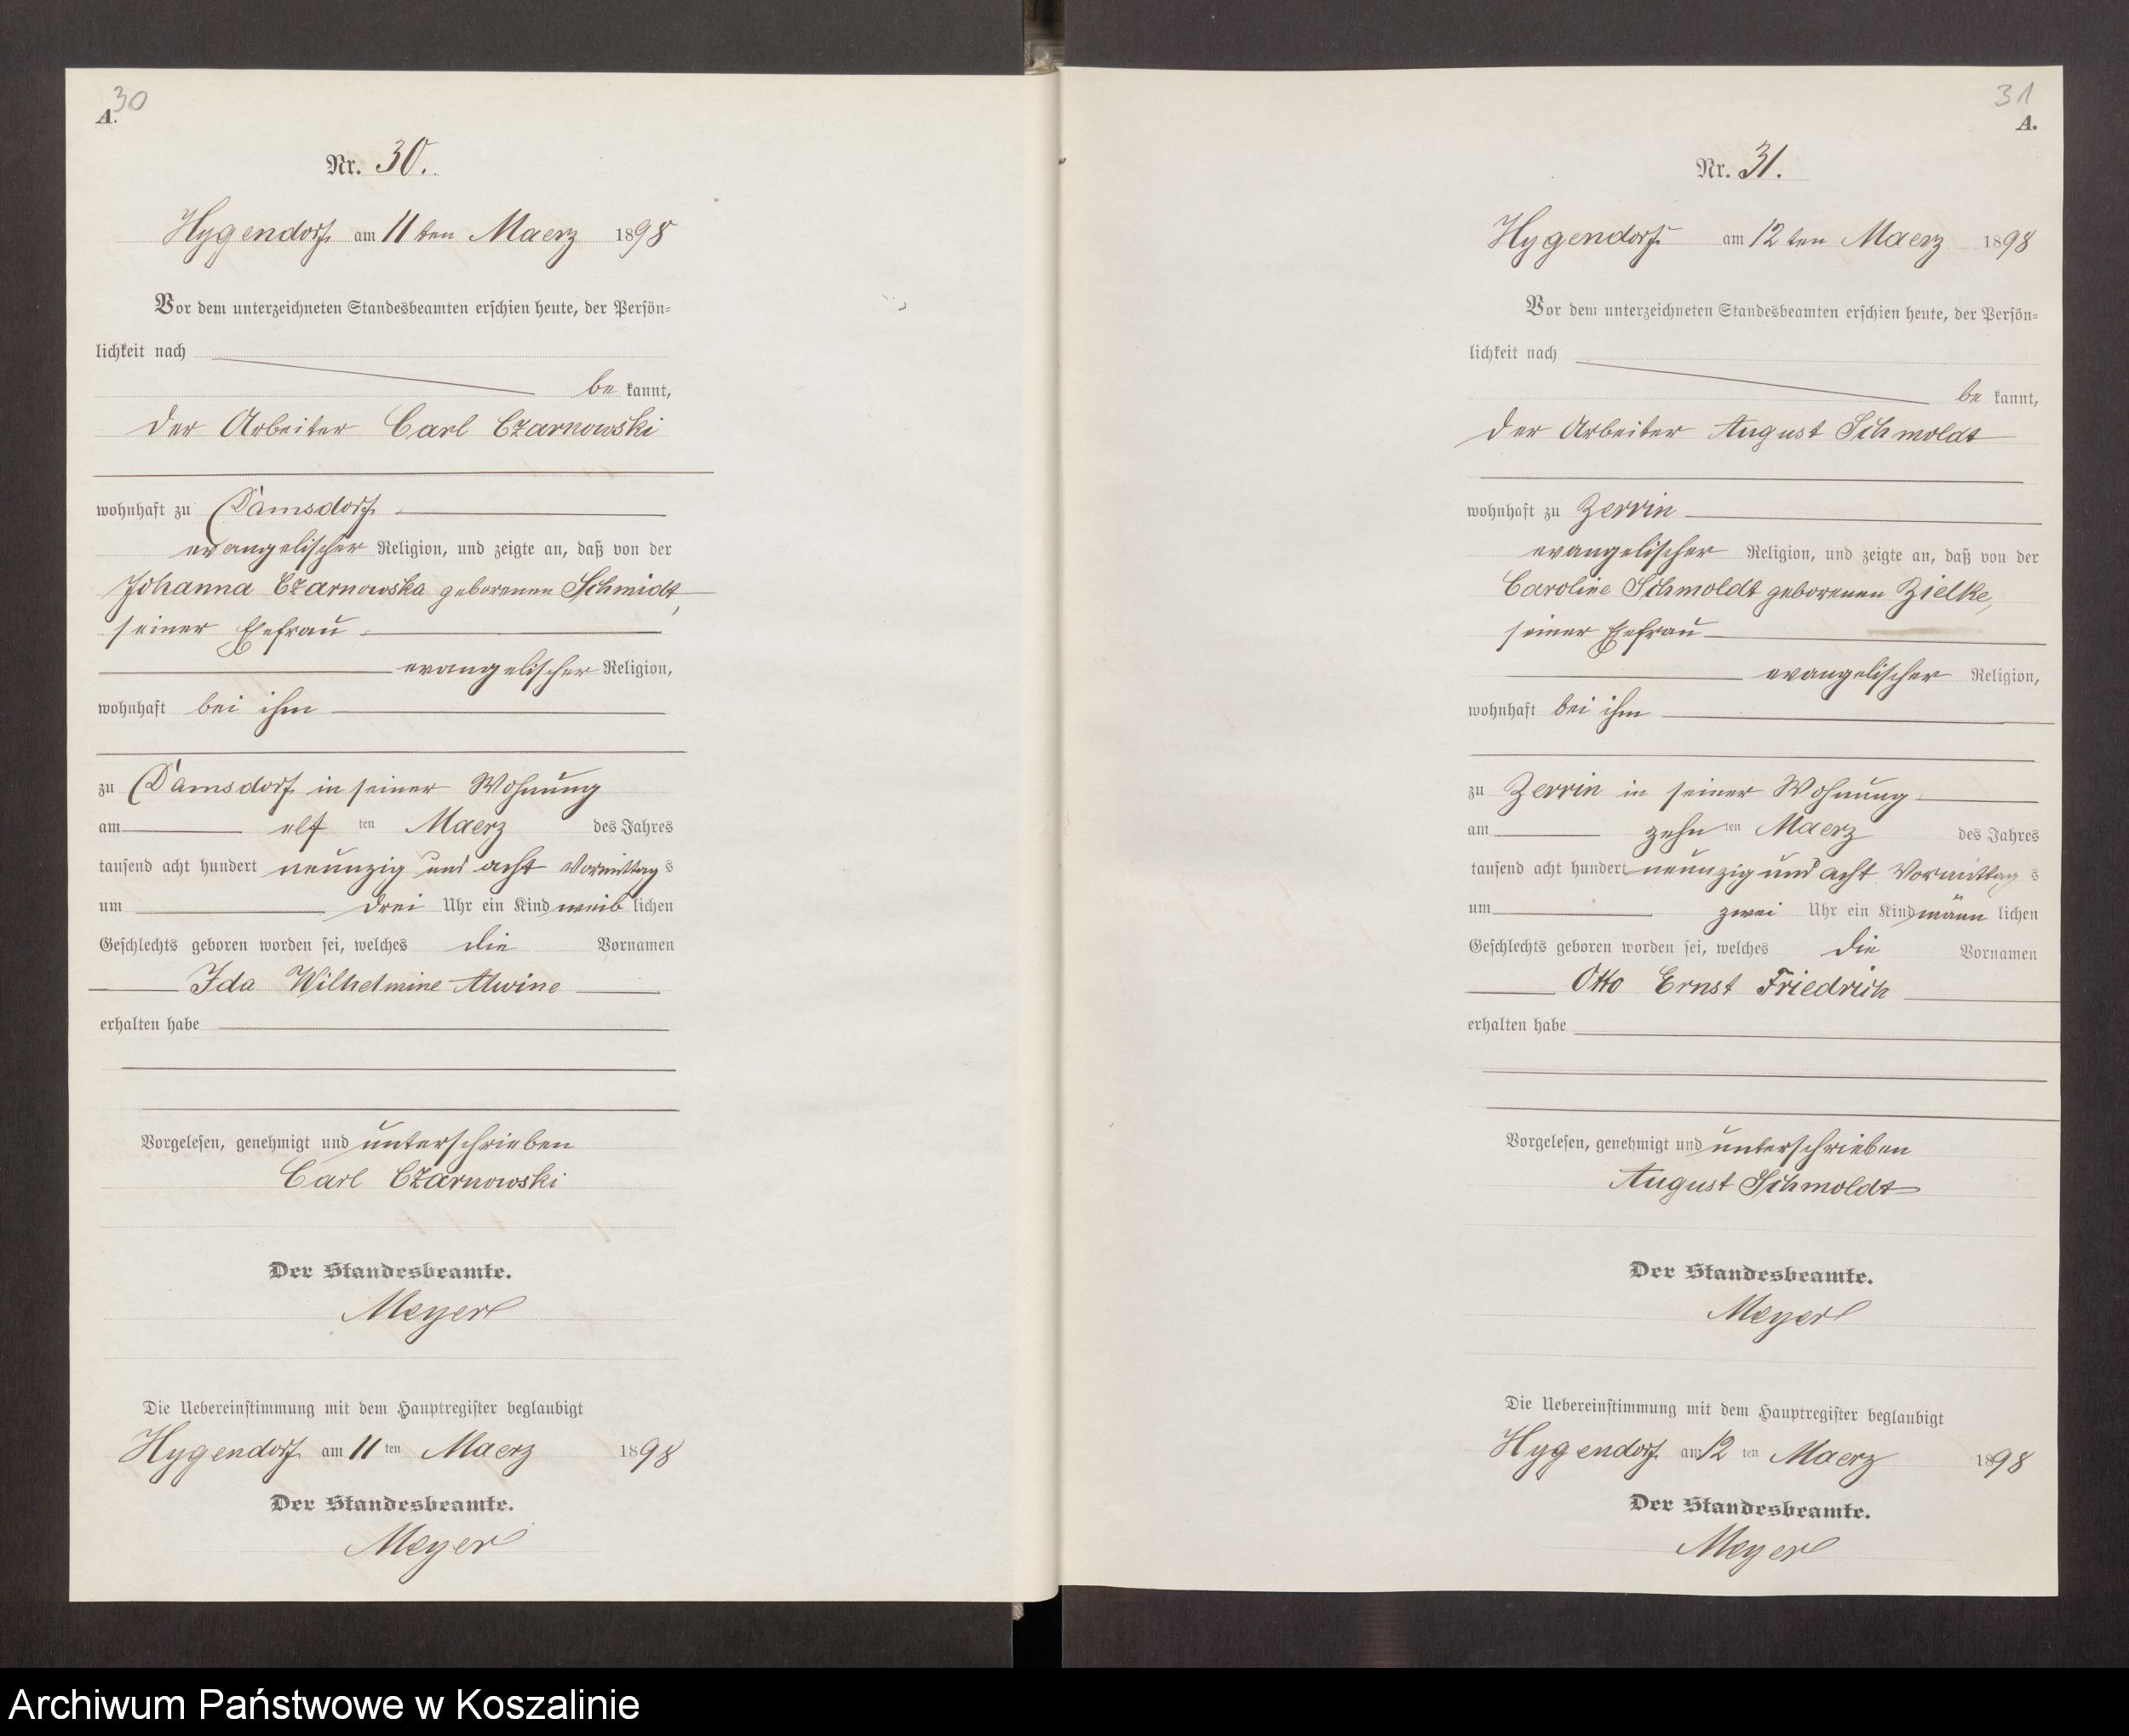 30
A.
Nr. 30.
Hygendorf am 11ten Maerz 1898
Vor dem unterzeichneten Standesbeamten erschien heute, der Persön=
lichkeit nach
be kannt,
der Arbeiter Carl Czarnowski
wohnhaft zu Damsdorf
evangelischer Religion, und zeigte an, daß von der
Johanna Czarnowska geborenen Schmidt,
seiner Ehefrau
evangelischer Religion,
wohnhaft bei ihm
zu Damsdorf in seiner Wohnung
am elf ten Maerz des Jahres
tausend acht hundert neunzig und acht Vormittag s
um drei Uhr ein Kind weib lichen
Geschlechts geboren worden sei, welches die Vornamen
Ida Wilhelmine Alwine
erhalten habe
Vorgelesen, genehmigt und unterschrieben
Carl Czarnowski
Der Standesbeamte.
Meyer
Die Uebereinstimmung mit dem Hauptregister beglaubigt
Hygendorf am 11 ten Maerz 1898
Der Standesbeamte.
Meyer
31
A.
Nr. 31.
Hygendorf am 12ten Maerz 1898
Vor dem unterzeichneten Standesbeamten erschien heute, der Persön=
lichkeit nach
be kannt,
der Arbeiter August Schmoldt
wohnhaft zu Zerrin
evangelischer Religion, und zeigte an, daß von der
Caroline Schmoldt geborenen Zielke,
seiner Ehefrau
evangelischer Religion,
wohnhaft bei ihm
zu Zerrin in seiner Wohnung
am zehn ten Maerz des Jahres
tausend acht hundert neunzig und acht Vormittag s
um zwei Uhr ein Kind männ lichen
Geschlechts geboren worden sei, welches die Vornamen
Otto Ernst Friedrich
erhalten habe
Vorgelesen, genehmigt und unterschrieben
August Schmoldt
Der Standesbeamte.
Meyer
Die Uebereinstimmung mit dem Hauptregister beglaubigt
Hygendorf am 12 ten Maerz 1898
Der Standesbeamte.
Meyer
Archiwum Państwowe w Koszalinie